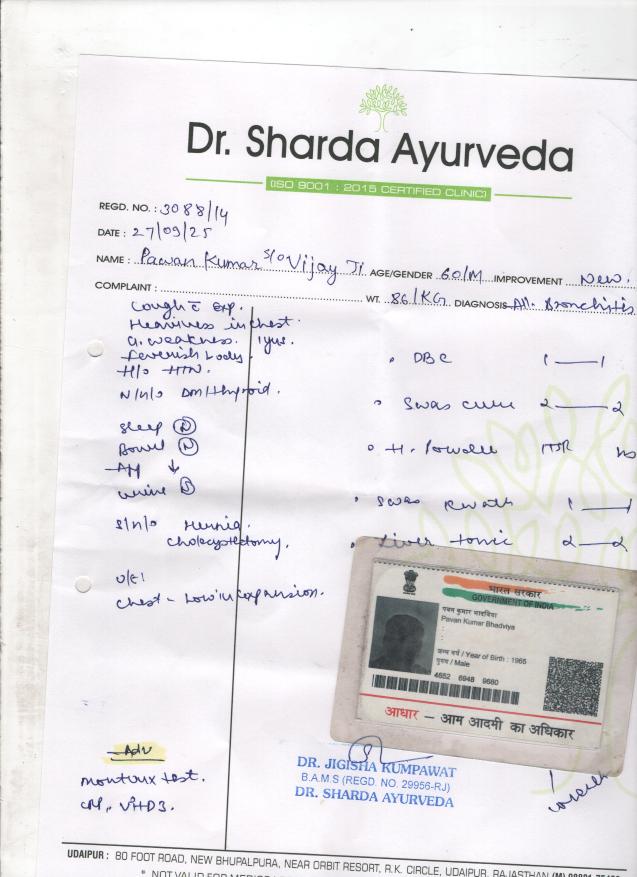 Dr. Sharda Ayurveda
(ISO 9001 : 2015 CERTIFIED CLINIC)
REGD. NO. : 3088/14
DATE : 27/09/25
NAME : Pawan Kumar S/O Vijay Ji AGE/GENDER 60/M IMPROVEMENT New.
COMPLAINT : WT. 86/KG DIAGNOSIS All. Bronchitis
Cough c̄ exp.
Heaviness in chest.
G. weakness. 1yr.
Feverish body.
H/o HTN.
N/h/o DM/thyroid.
Sleep N
Bowel N
App ↓
urine
S/h/o Hernia.
Cholecystectomy.
O/E!
Chest - Low in expansion.
• DBC 1 — 1
• Swas cure 2 — 2
• H. Powder
• Swas Kwath 1 — 1
• Liver tonic 2 — 2
भारत सरकार
GOVERNMENT OF INDIA
पवन कुमार भादविया
Pavan Kumar Bhadviya
जन्म वर्ष / Year of Birth : 1965
पुरुष / Male
4652 6948 9680
आधार – आम आदमी का अधिकार
Adv
Montoux test.
VitD3.
DR. JIGISHA KUMPAWAT
B.A.M.S (REGD. NO. 29956-RJ)
DR. SHARDA AYURVEDA
UDAIPUR : 80 FOOT ROAD, NEW BHUPALPURA, NEAR ORBIT RESORT, R.K. CIRCLE, UDAIPUR, RAJASTHAN (M)
* NOT VALID FOR